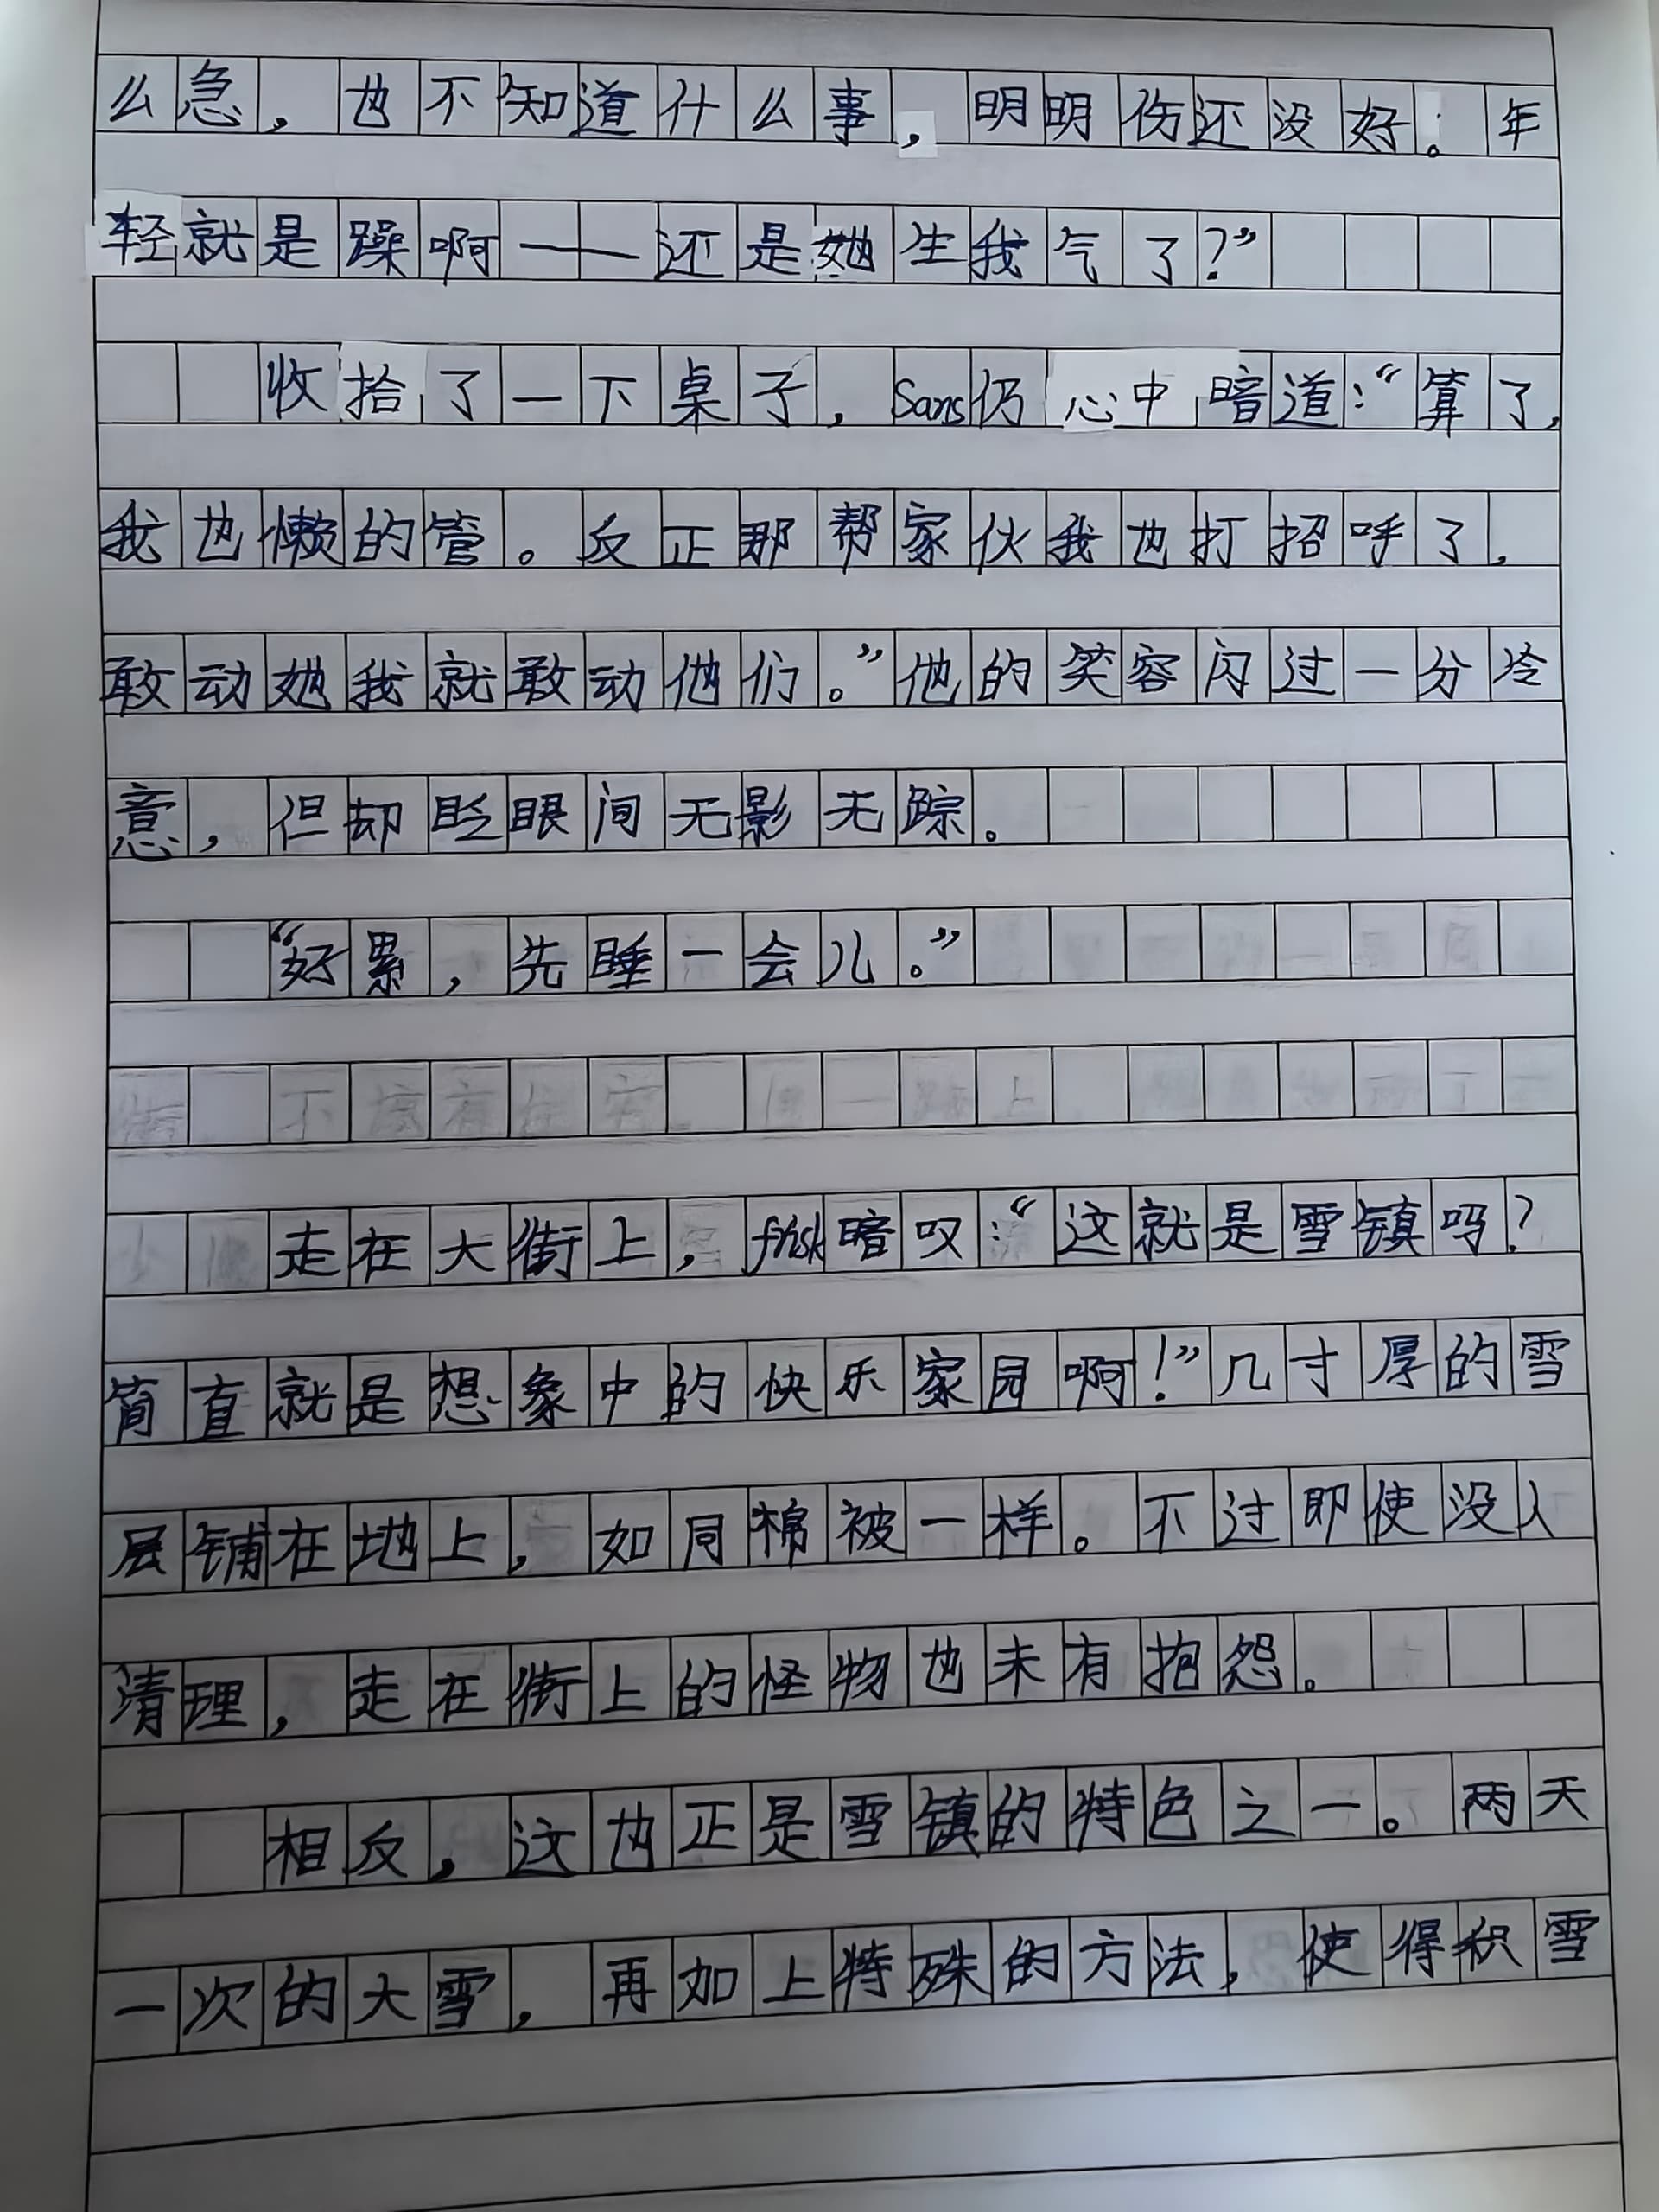 么急，也不知道什么事，明明伤还没好。年
轻就是躁啊——还是她生我气了?”
收拾了一下桌子，Sans仍心中暗道:“算了，
我也懒的管。反正那帮家伙我也打招呼了，
敢动她我就敢动他们。”他的笑容闪过一分冷
意，但却眨眼间无影无踪。
“好累，先睡一会儿。”
走在大街上，frisk暗叹:“这就是雪镇吗?
简直就是想象中的快乐家园啊!”几寸厚的雪
层铺在地上，如同棉被一样。不过即使没人
清理，走在街上的怪物也未有抱怨。
相反，这也正是雪镇的特色之一。两天
一次的大雪，再如上特殊的方法，使得积雪